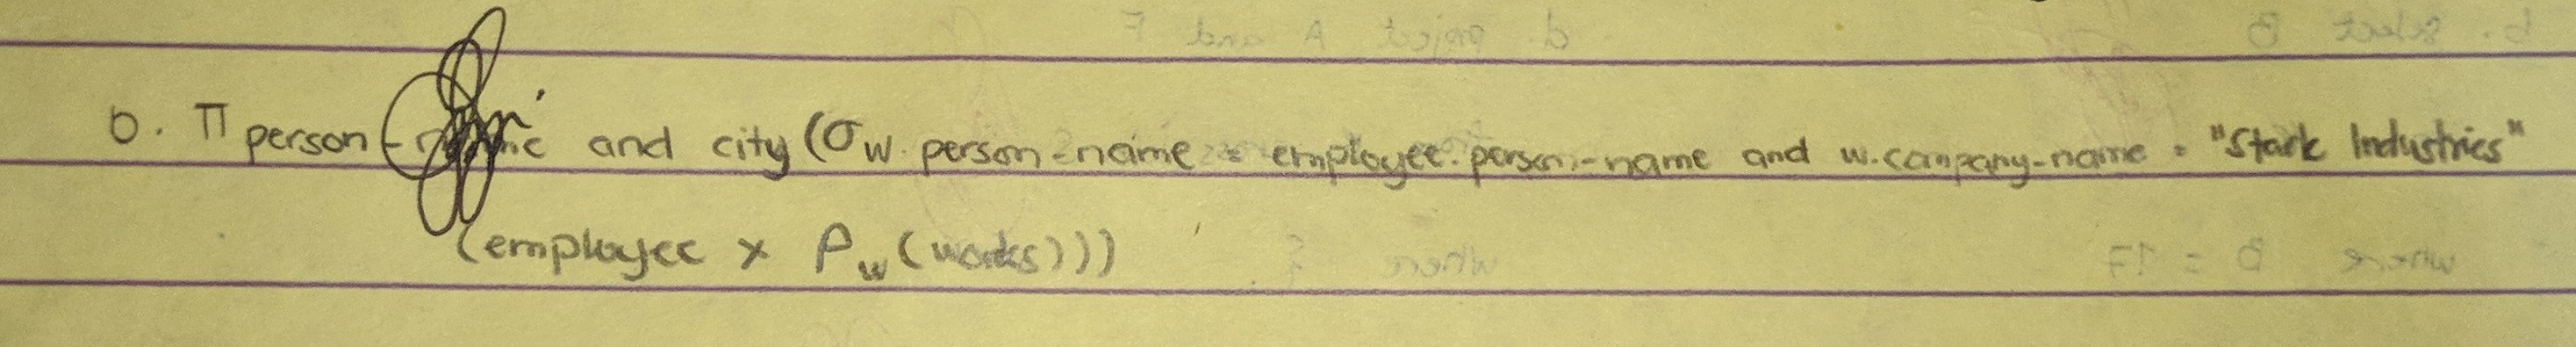 b. π person-name and city (σ w.person-name = employee.person-name and w.company-name = "Stark Industries"
(employee x ρ w (works)))